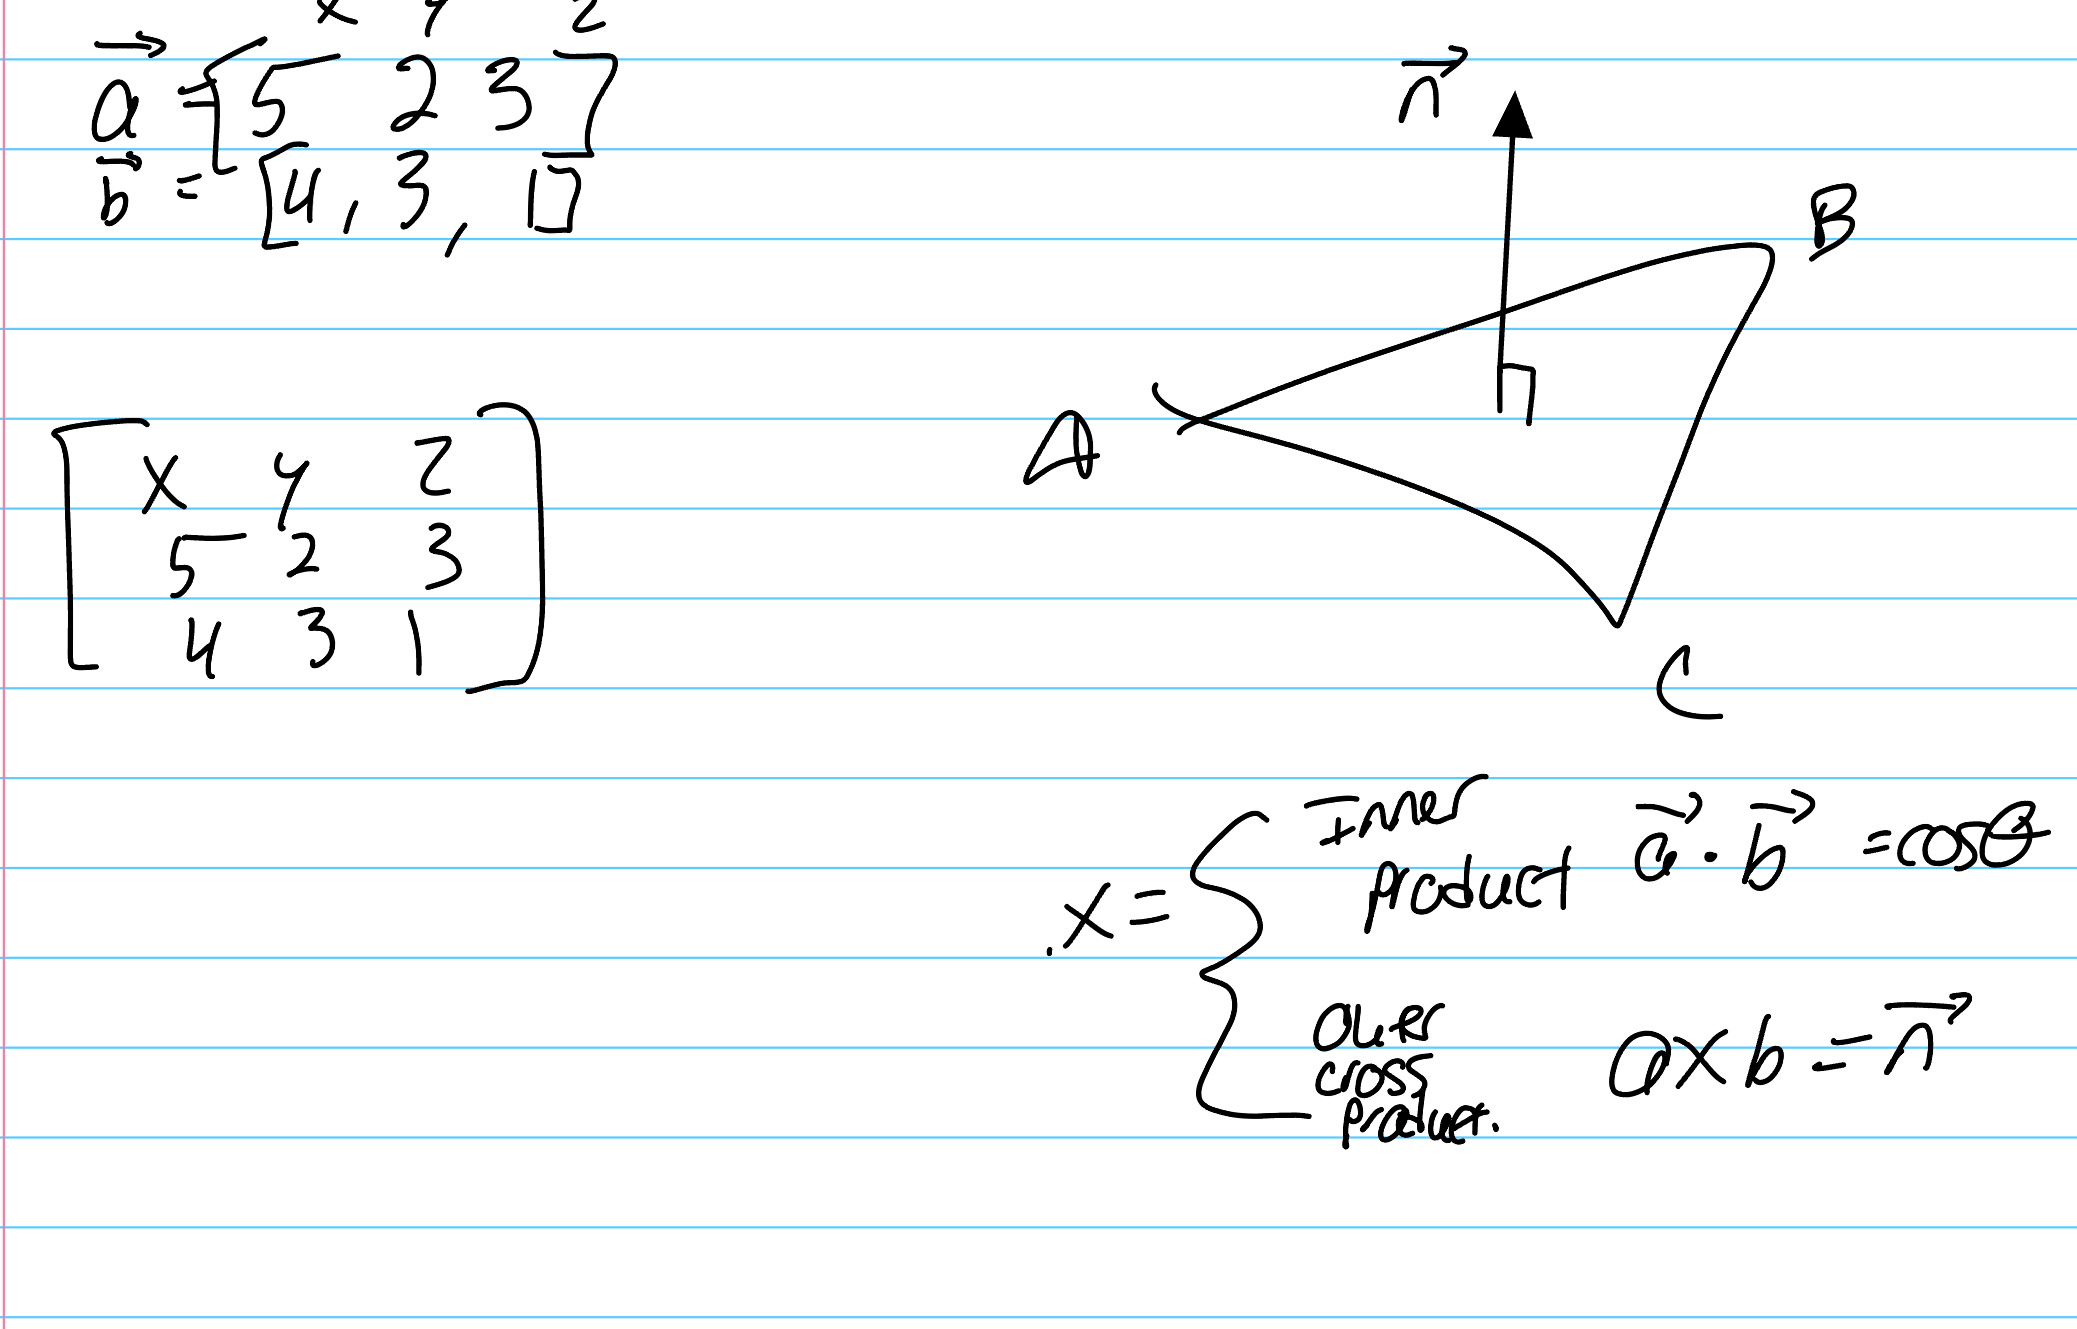 x y z
a⃗ = [5 2 3]
b⃗ = [4, 3, 1]
n⃗
B
A
C
[x y z
5 2 3
4 3 1]
.x = { Inner
product a⃗ · b⃗ = cosθ
outer
cross
product. a x b = n⃗